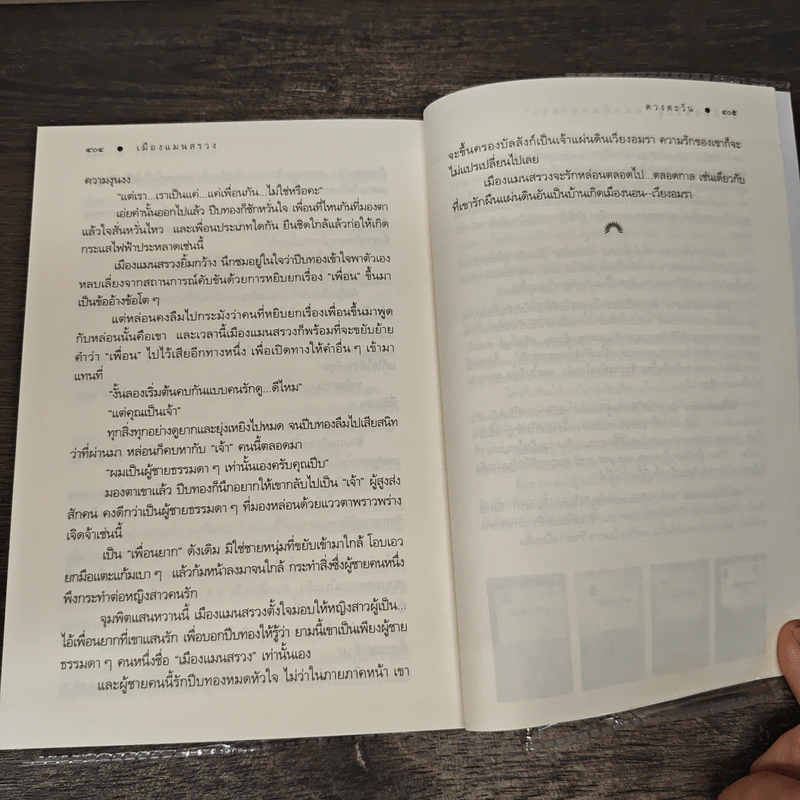 ๔๐๔ ● เมืองแมนสรวง
ความงุนงง
“แต่เรา...เราเป็นแค่...แค่เพื่อนกัน...ไม่ใช่หรือคะ”
เอ่ยคำนั้นออกไปแล้ว ปีบทองก็ชักหวั่นใจ เพื่อนที่ไหนกันที่มองตา
แล้วใจสั่นหวั่นไหว และเพื่อนประเภทใดกัน ยืนชิดใกล้แล้วก่อให้เกิด
กระแสไฟฟ้าประหลาดเช่นนี้
เมืองแมนสรวงยิ้มกว้าง นึกชมอยู่ในใจว่าปีบทองเข้าใจพาตัวเอง
หลบเลี่ยงจากสถานการณ์คับขันด้วยการหยิบยกเรื่อง “เพื่อน” ขึ้นมา
เป็นข้ออ้างข้อโต ๆ
แต่หล่อนคงลืมไปกระมังว่าคนที่หยิบยกเรื่องเพื่อนขึ้นมาพูด
กับหล่อนนั้นคือเขา และเวลานี้เมืองแมนสรวงก็พร้อมที่จะขยับย้าย
คำว่า “เพื่อน” ไปไว้เสียอีกทางหนึ่ง เพื่อเปิดทางให้คำอื่น ๆ เข้ามา
แทนที่
“งั้นลองเริ่มต้นคบกันแบบคนรักดู...ดีไหม”
“แต่คุณเป็นเจ้า”
ทุกสิ่งทุกอย่างดูยากและยุ่งเหยิงไปหมด จนปีบทองลืมไปเสียสนิท
ว่าที่ผ่านมา หล่อนก็คบหากับ “เจ้า” คนนี้ตลอดมา
“ผมเป็นผู้ชายธรรมดา ๆ เท่านั้นเองครับคุณปีบ”
มองตาเขาแล้ว ปีบทองก็นึกอยากให้เขากลับไปเป็น “เจ้า” ผู้สูงส่ง
สักคน คงดีกว่าเป็นผู้ชายธรรมดา ๆ ที่มองหล่อนด้วยแววตาพราวพร่าง
เจิดจ้าเช่นนี้
เป็น “เพื่อนยาก” ดังเดิม มิใช่ชายหนุ่มที่ขยับเข้ามาใกล้ โอบเอว
ยกมือแตะแก้มเบา ๆ แล้วก้มหน้าลงมาจนใกล้ กระทำสิ่งซึ่งผู้ชายคนหนึ่ง
พึงกระทำต่อหญิงสาวคนรัก
จุมพิตแสนหวานนี้ เมืองแมนสรวงตั้งใจมอบให้หญิงสาวผู้เป็น...
ไอ้เพื่อนยากที่เขาแสนรัก เพื่อบอกปีบทองให้รู้ว่า ยามนี้เขาเป็นเพียงผู้ชาย
ธรรมดา ๆ คนหนึ่งชื่อ “เมืองแมนสรวง” เท่านั้นเอง
และผู้ชายคนนี้รักปีบทองหมดหัวใจ ไม่ว่าในภายภาคหน้า เขา
ดวงตะวัน ● ๔๐๕
จะขึ้นครองบัลลังก์เป็นเจ้าแผ่นดินเวียงอมรา ความรักของเขาก็จะ
ไม่แปรเปลี่ยนไปเลย
เมืองแมนสรวงจะรักหล่อนตลอดไป...ตลอดกาล เช่นเดียวกับ
ที่เขารักผืนแผ่นดินอันเป็นบ้านเกิดเมืองนอน–เวียงอมรา